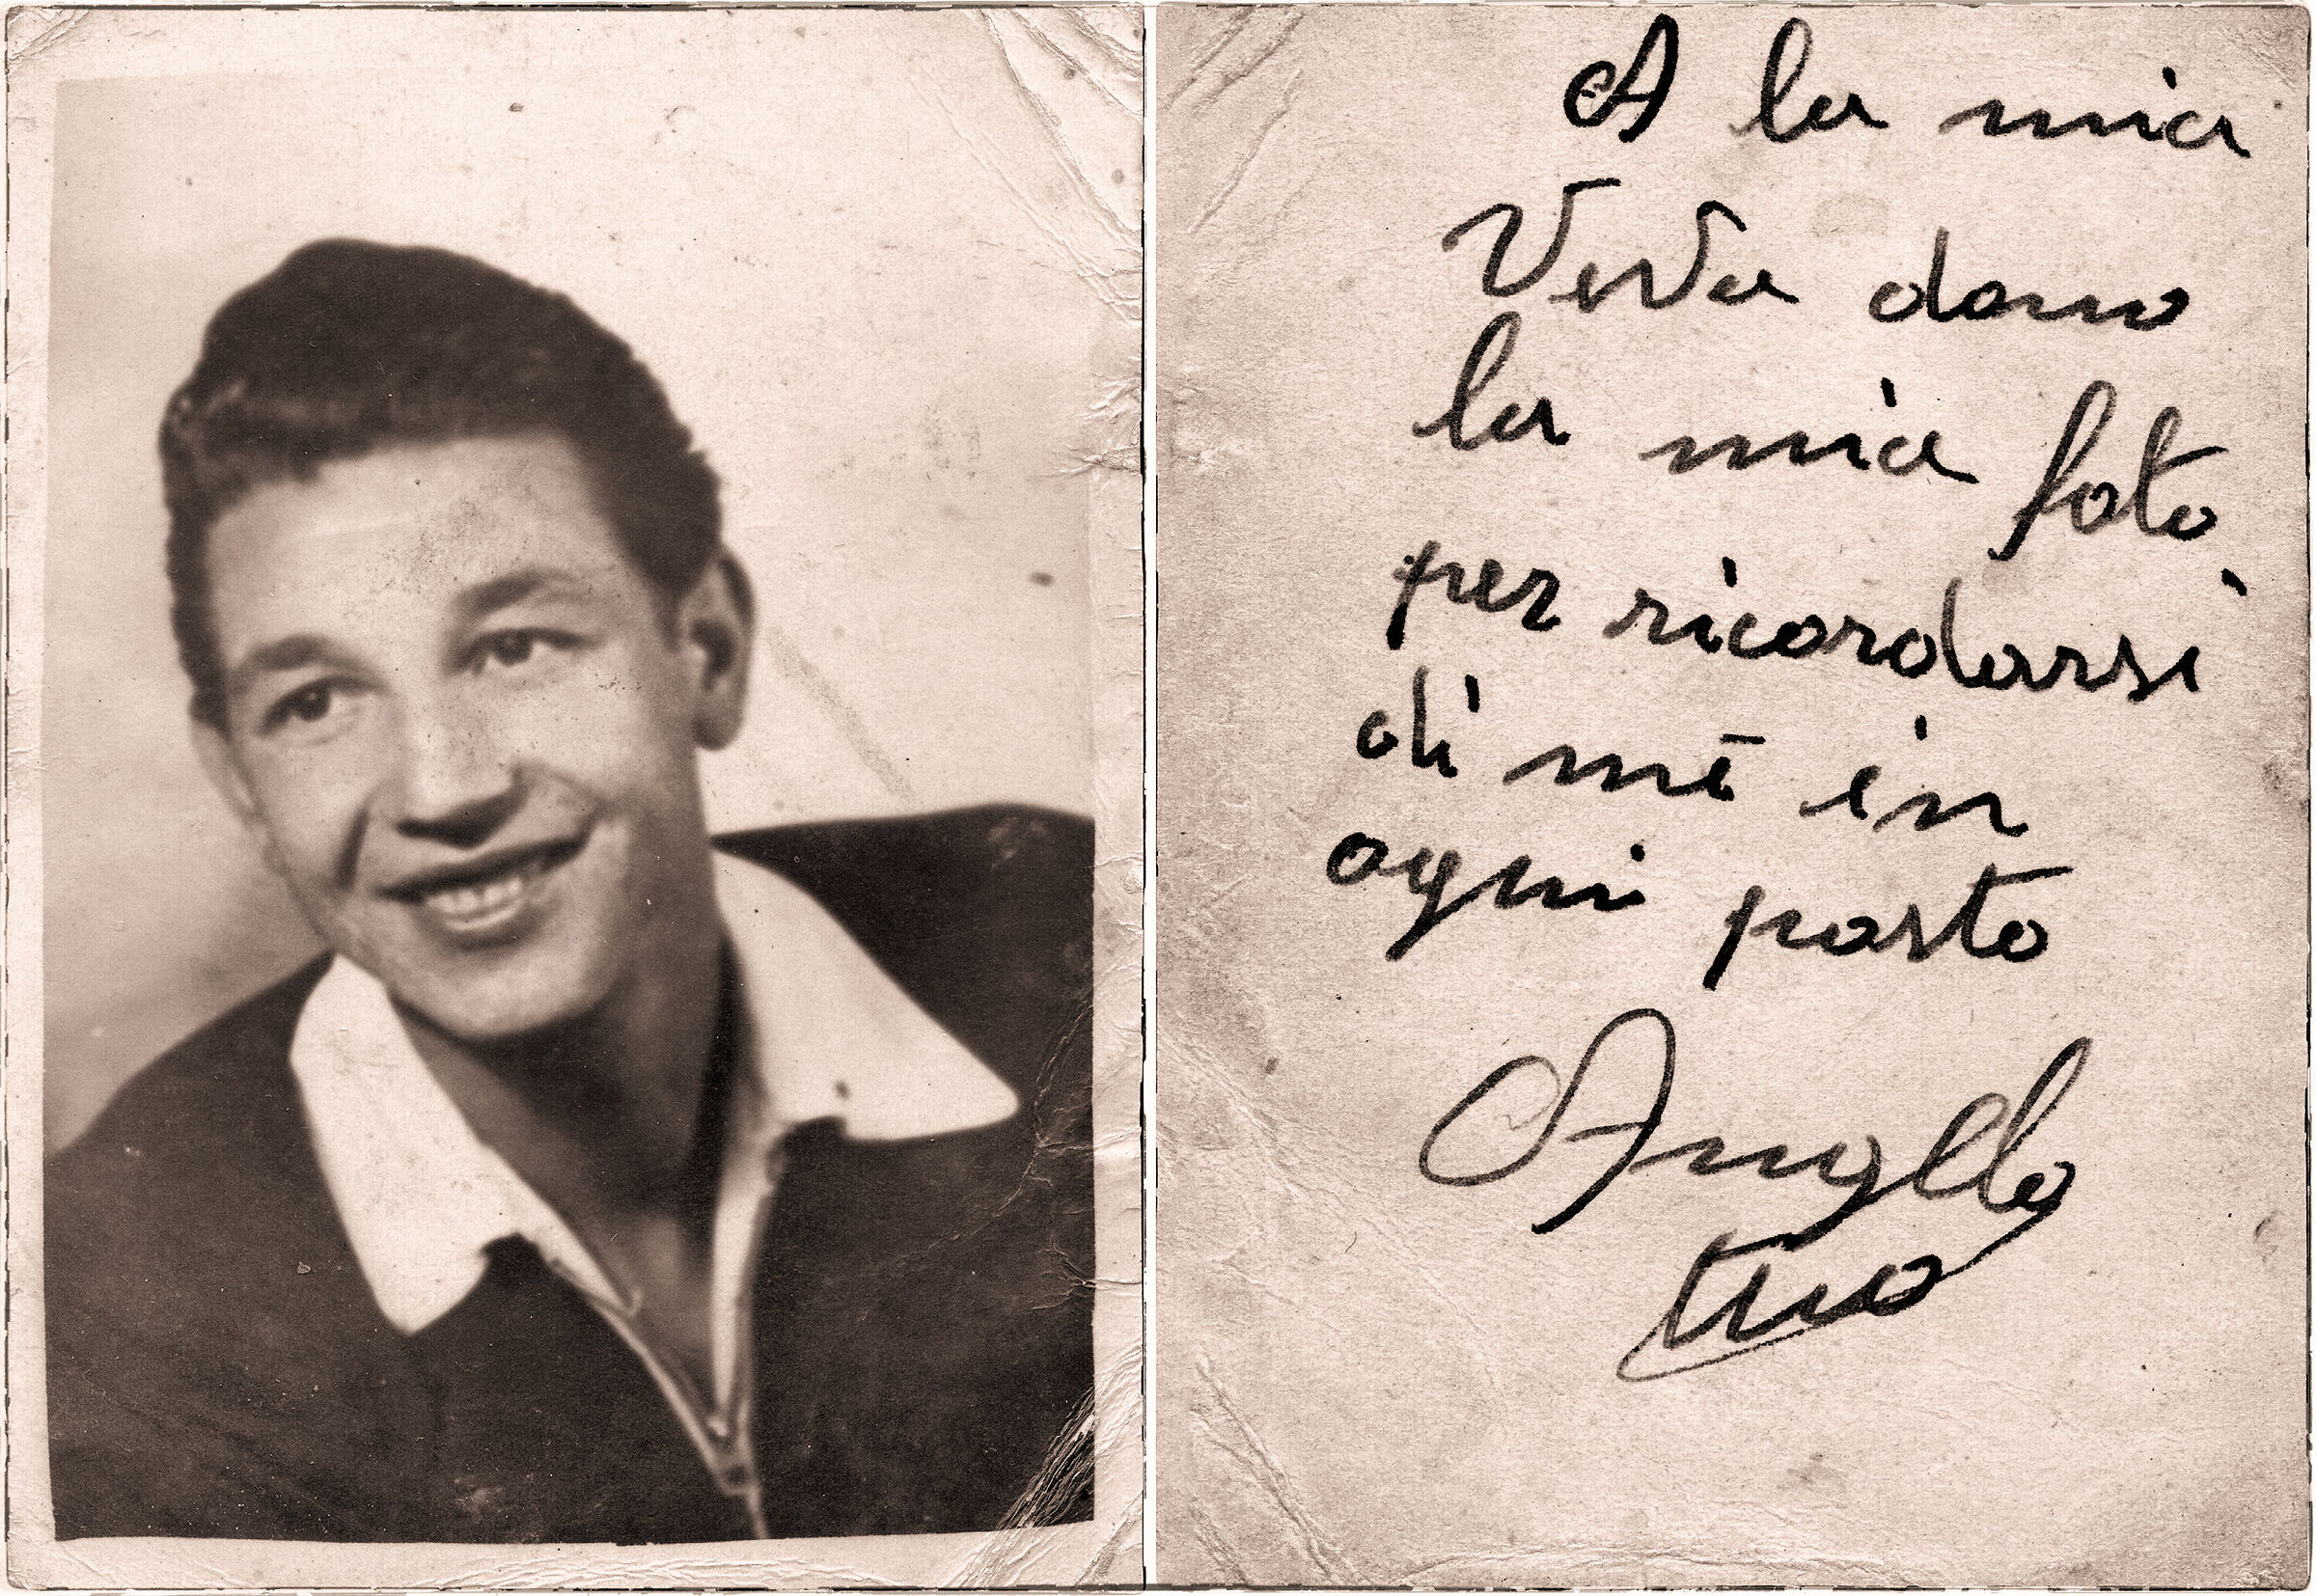 A la mia
Veva dono
la mia foto
per ricordarsi
di mē in
ogni posto
Angello
tuo